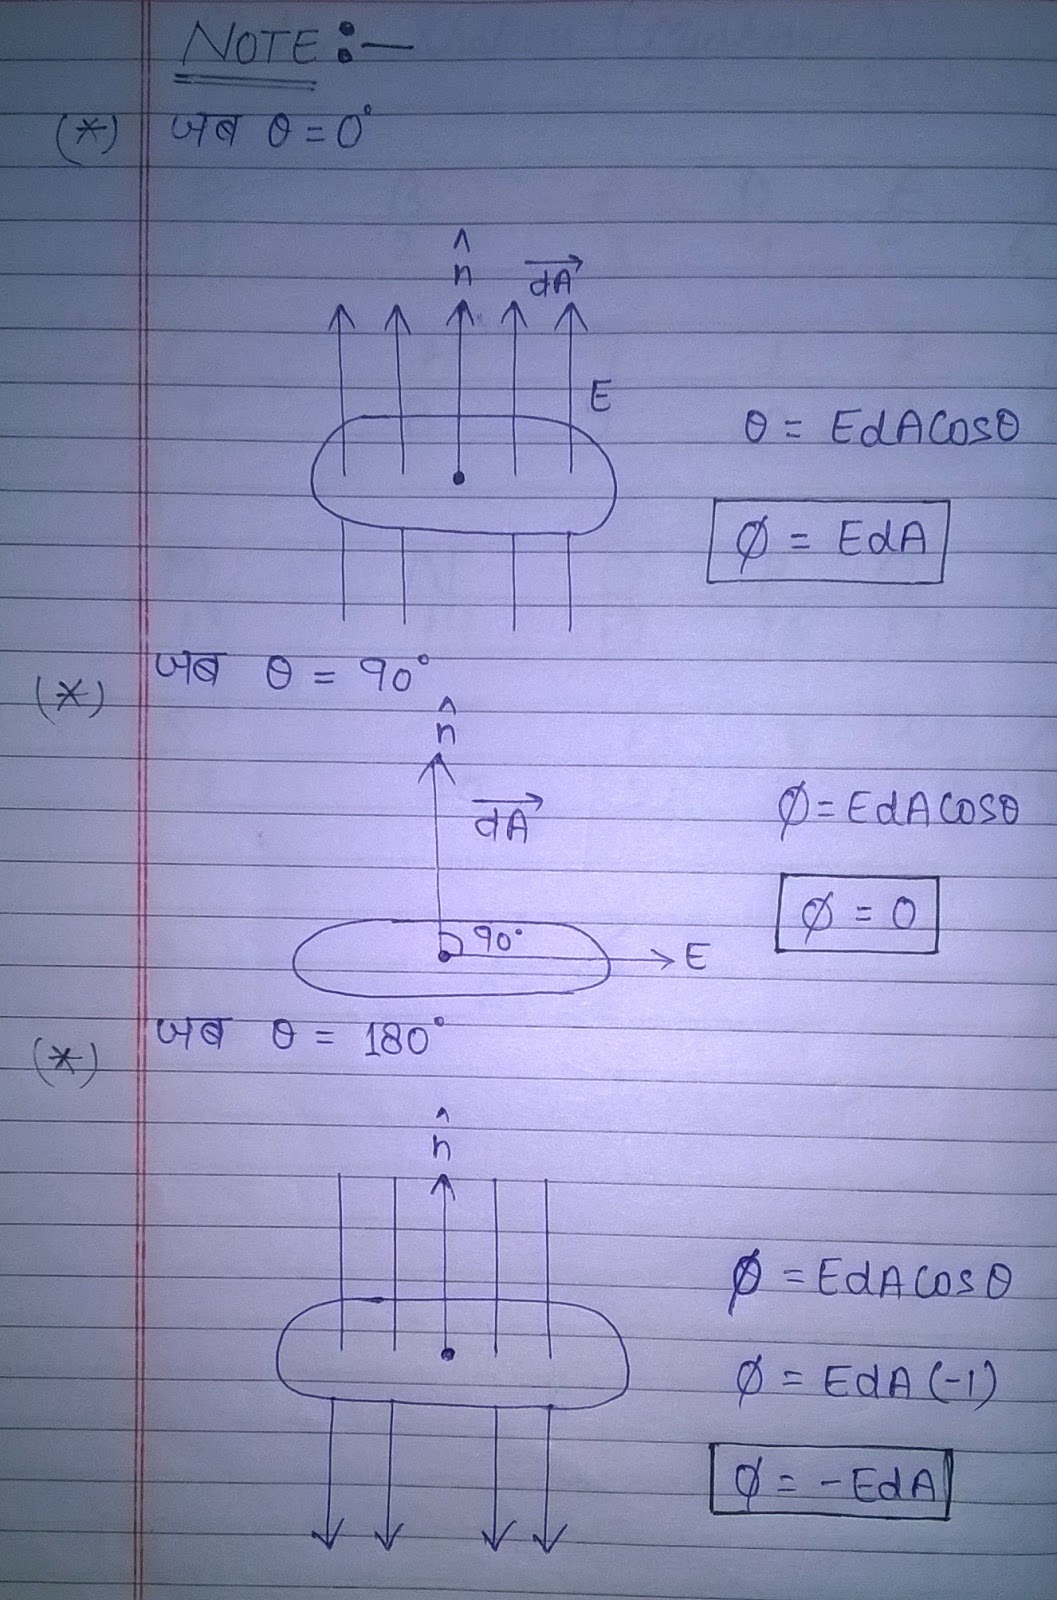 NOTE :—
(*) जब θ = 0°
n̂ dA⃗
E
θ = EdACosθ
ϕ = EdA
(*) जब θ = 90°
n̂
dA⃗
ϕ = EdACosθ
ϕ = 0
90°
E
(*) जब θ = 180°
n̂
ϕ = EdACosθ
ϕ = EdA(-1)
ϕ = -EdA